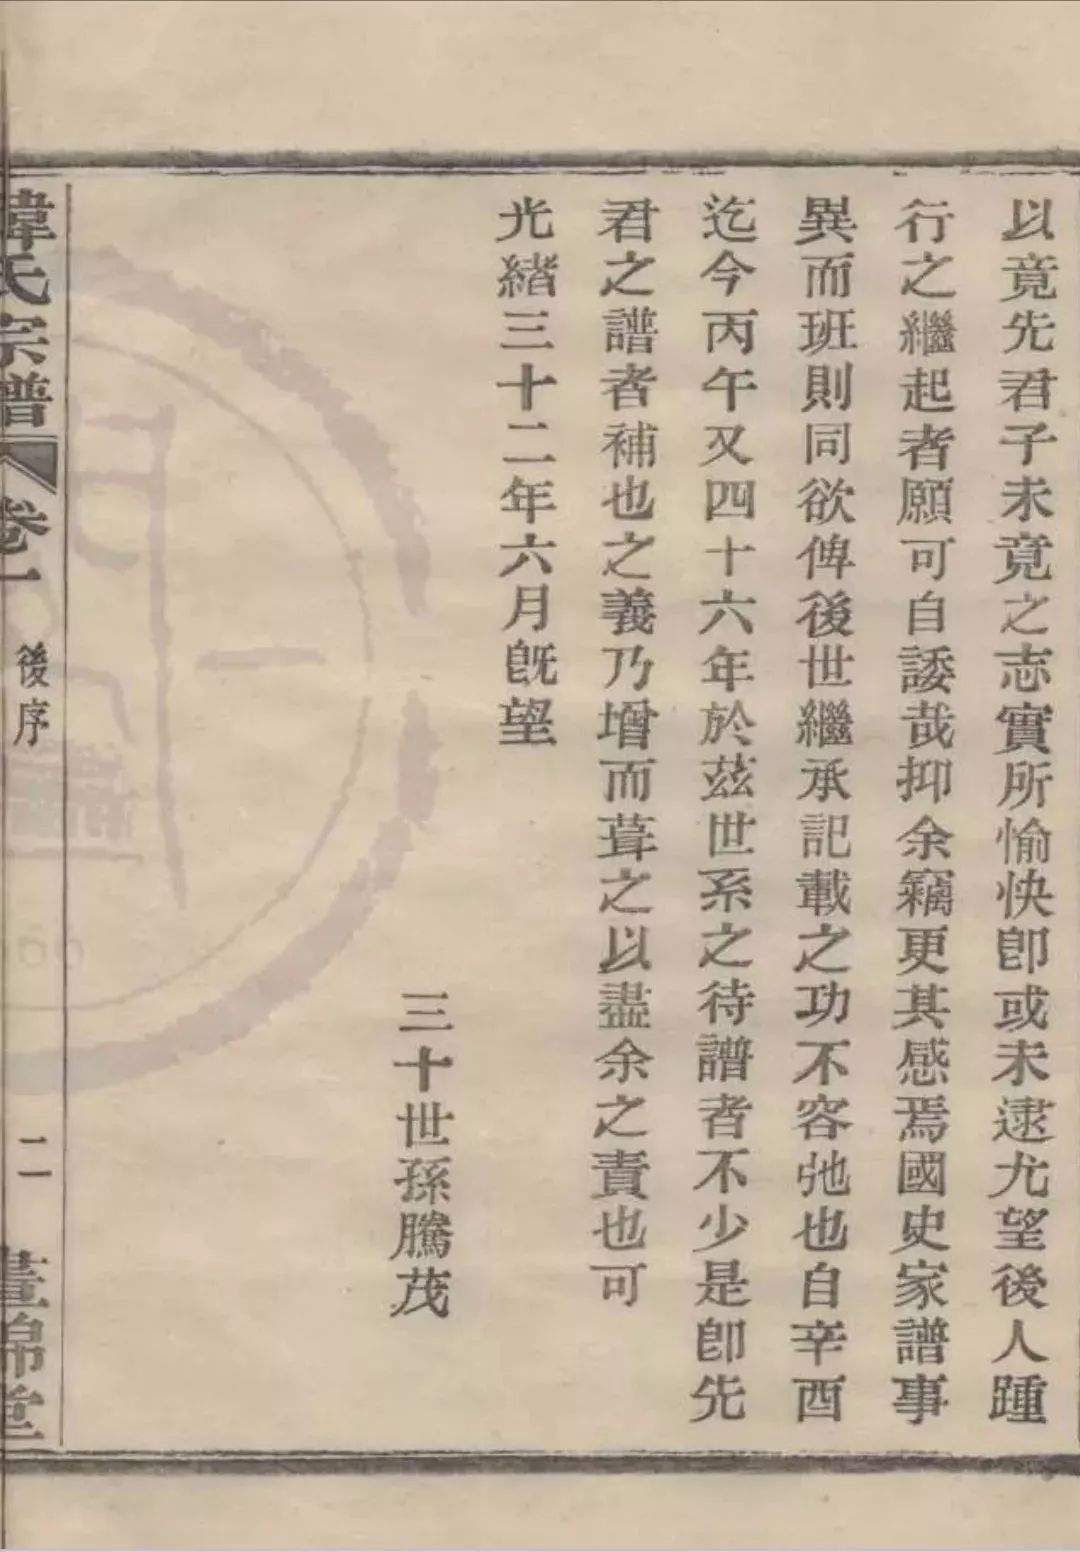 以竟先君子未竟之志實所愉快卽或未逮尤望後人踵
行之繼起者願可自諉哉抑余竊更其感焉國史家譜事
異而班則同欲俾後世繼承記載之功不容弛也自辛酉
迄今丙午又四十六年於茲世系之待譜者不少是卽先
君之譜者補也之義乃增而葺之以盡余之責也可
光緒三十二年六月旣望
三十世孫騰茂
氏宗譜
卷一
後序
二
晝錦堂